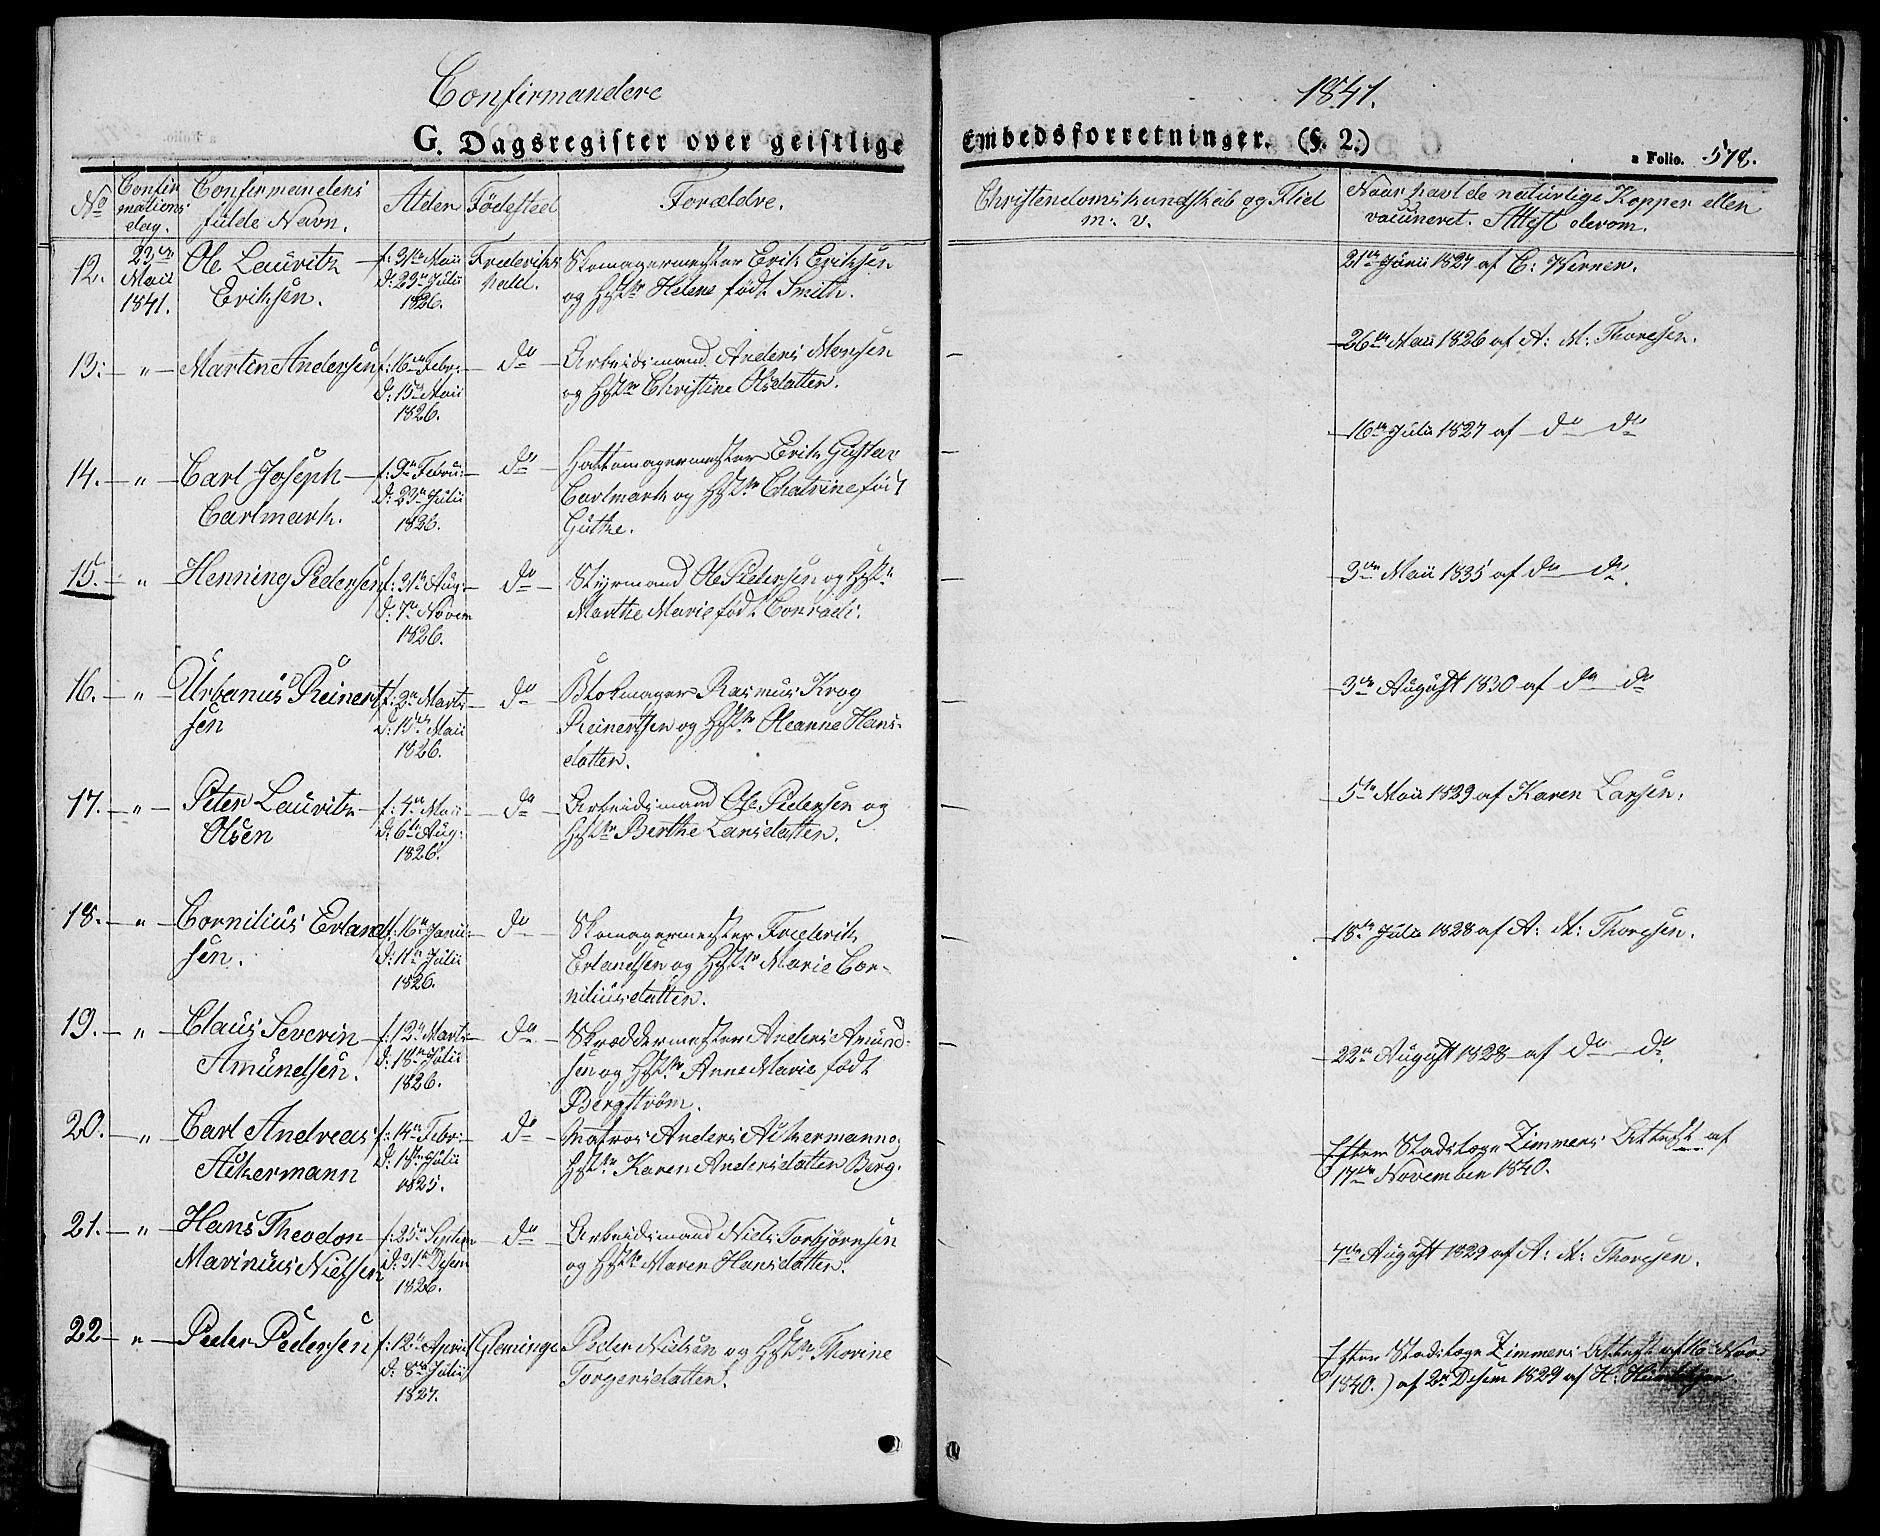 Confirmandere
1841.
G. Dagsregister over geistlige Embedsforretninger. (§. 2.)
a Folio. 578.
No
Confir
mations
dag.
Confirmandens
fulde Navn.
Alder
Fødested
Forældre.
Christendomskundskab og Flid
m. v.
Naar havt de naturlige Kopper eller
vaccineret. Attest derom.
12. 23de Maii 1841.
Ole Lauritz
Eriksen.
f: 31te Maii
d: 23de Julii
1826.
Frederiks
hald.
Skomagermester Erik Eriksen
og Hstr Helene født Smith.
21de Junii 1827 af C: Werner.
13: — " — Martin Andersen
f: 16de Febr:
d: 15de Maii
1826.
do
Arbeidsmand Anders
og Hstr Christine Olsdatter.
26de Maii 1826 af A: M: Thoresen.
14. — " — Carl Joseph
Carlmark.
f: 9de Febru:
d: 23de Julii
1826.
do
Hattemagermester Erik Gustav
Carlmark og Hstr Chatrine født
Guthe.
16de Julii 1827 af do do
15. — " — Henning Pedersen
f: 31te Aug:
d: 7de Novem
1826.
do
Styrmand Ole Pedersen og Hstr
Marthe Marie født Conradi.
3die Maii 1835 af do do.
16. — " — Urbanus Reinert
sen
f: 2den Marts
d: 15de Maii
1826.
do
Blokmager Rasmus Krog
Reinertsen og Hstr Oleanne Hans-
datter.
3die August 1830 af do do
17. — " — Peter Lauritz
Olsen
f: 4de Maii
d: 6te Aug:
1826.
do
Arbeidsmand Ole Pedersen og
Hstr Berthe Larsdatter.
5te Maii 1829 af Karen Larsen.
18. — " — Cornilius Erland
sen.
f: 16de Janu:
d: 11te Julii
1826.
do
Skomagermester Frederik
Erlandsen og Hstr Marie Cor-
niliusdatter.
18de Julii 1828 af A: M: Thoresen.
19. — " — Claus Severin
Amundsen.
f: 12te Marts
d: 18de Julii
1826.
do
Skræddermester Anders Amund-
sen og Hstr Anne Marie født
Bergstrøm.
22de August 1828 af do do.
20. — " — Carl Andreas
Ackermann
f: 14de Febr:
d: Julii
1825.
do
Matros Anders Ackermann og
Hstr Karen Andersdatter Berg.
Efter Stadslæge Zimmers Attest af
17de November 1840.
21. — " — Hans Theodor
Marinius Nielsen
f: 25de Septem
d: 31te Desem
1826.
do
Arbeidsmand Niels Torbjørnsen
og Hstr Maren Hansdatter.
7de August 1829 af A: M: Thoresen.
22 — " — Peder Pedersen
f: 12te April
d: 8de Julii
1827.
Glemminge
Peder Nielsen og Hstr Thorine
Torgersdatter.
Efter Stadslæge Zimmers Attest af 16de Nov
1840.) af 2den Desem 1829 af H: